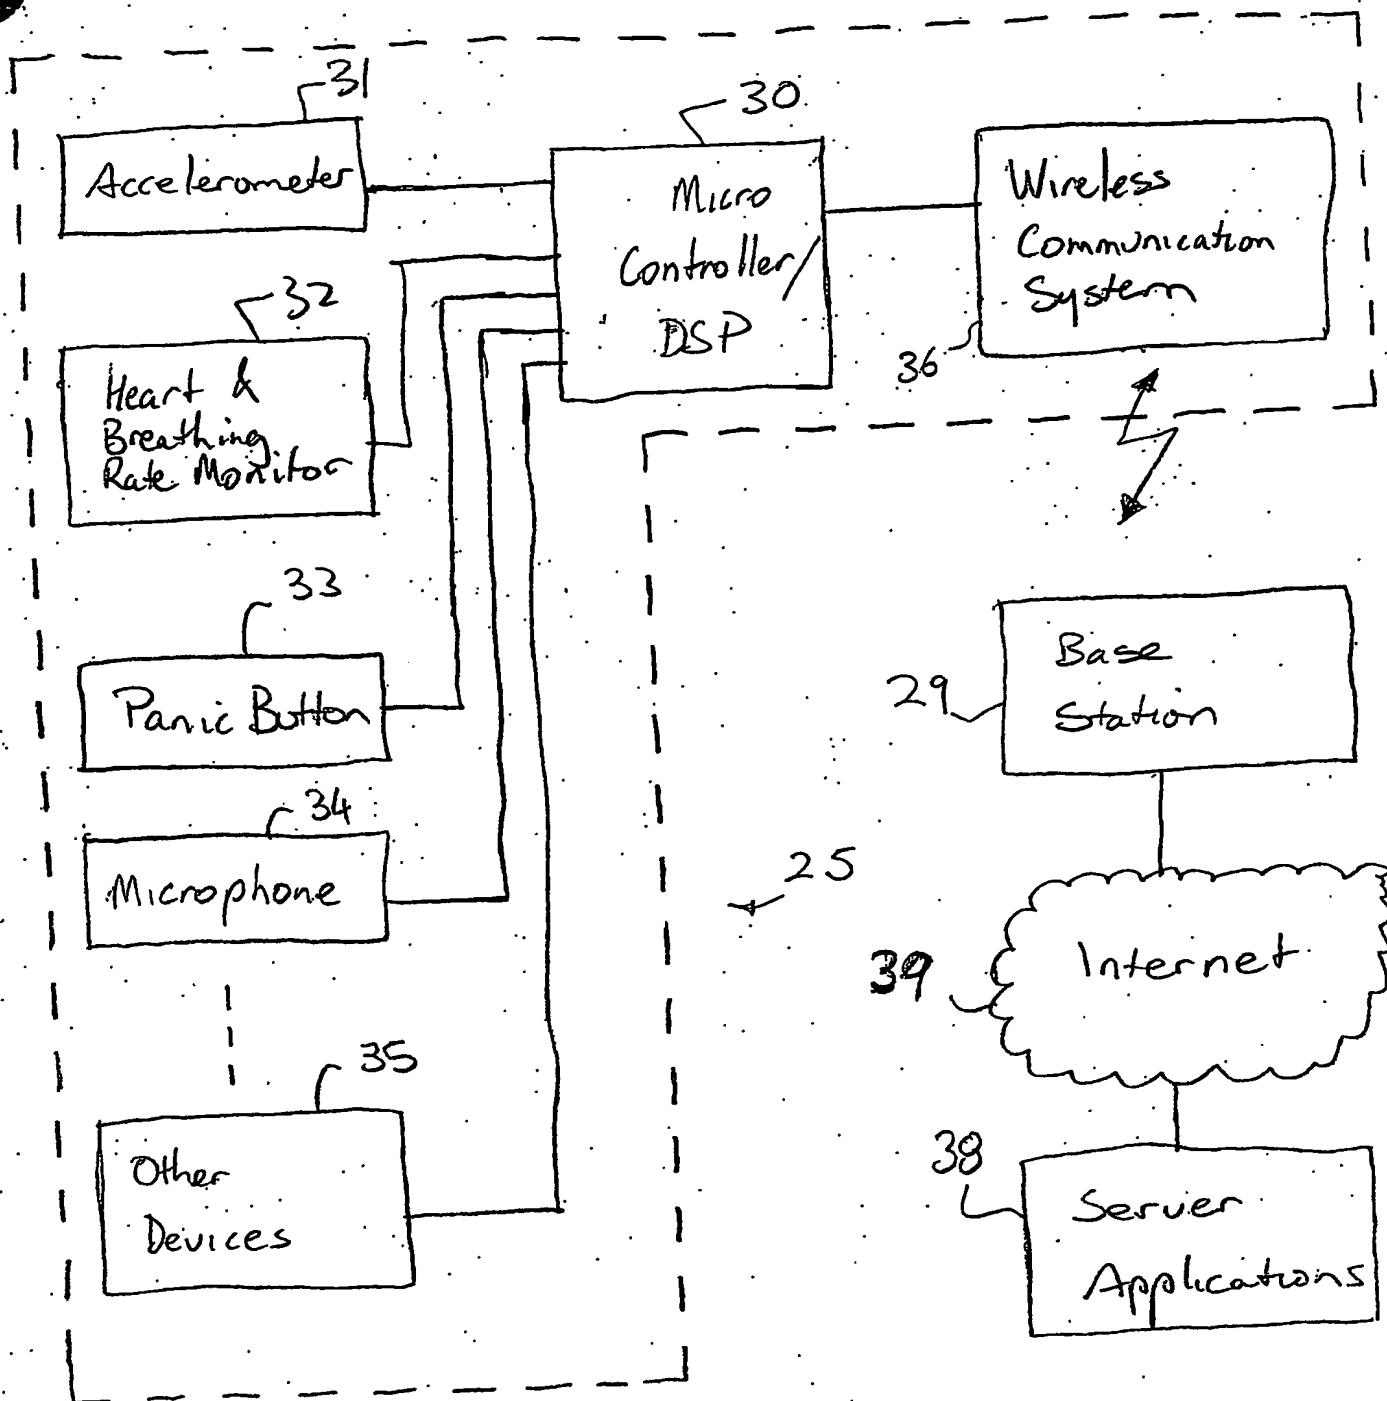 31
Accelerometer
30
Micro
Controller/
DSP
Wireless
Communication
System
36
32
Heart &
Breathing
Rate Monitor
33
Panic Button
34
Microphone
35
Other
Devices
25
29
Base
Station
39
Internet
38
Server
Applications